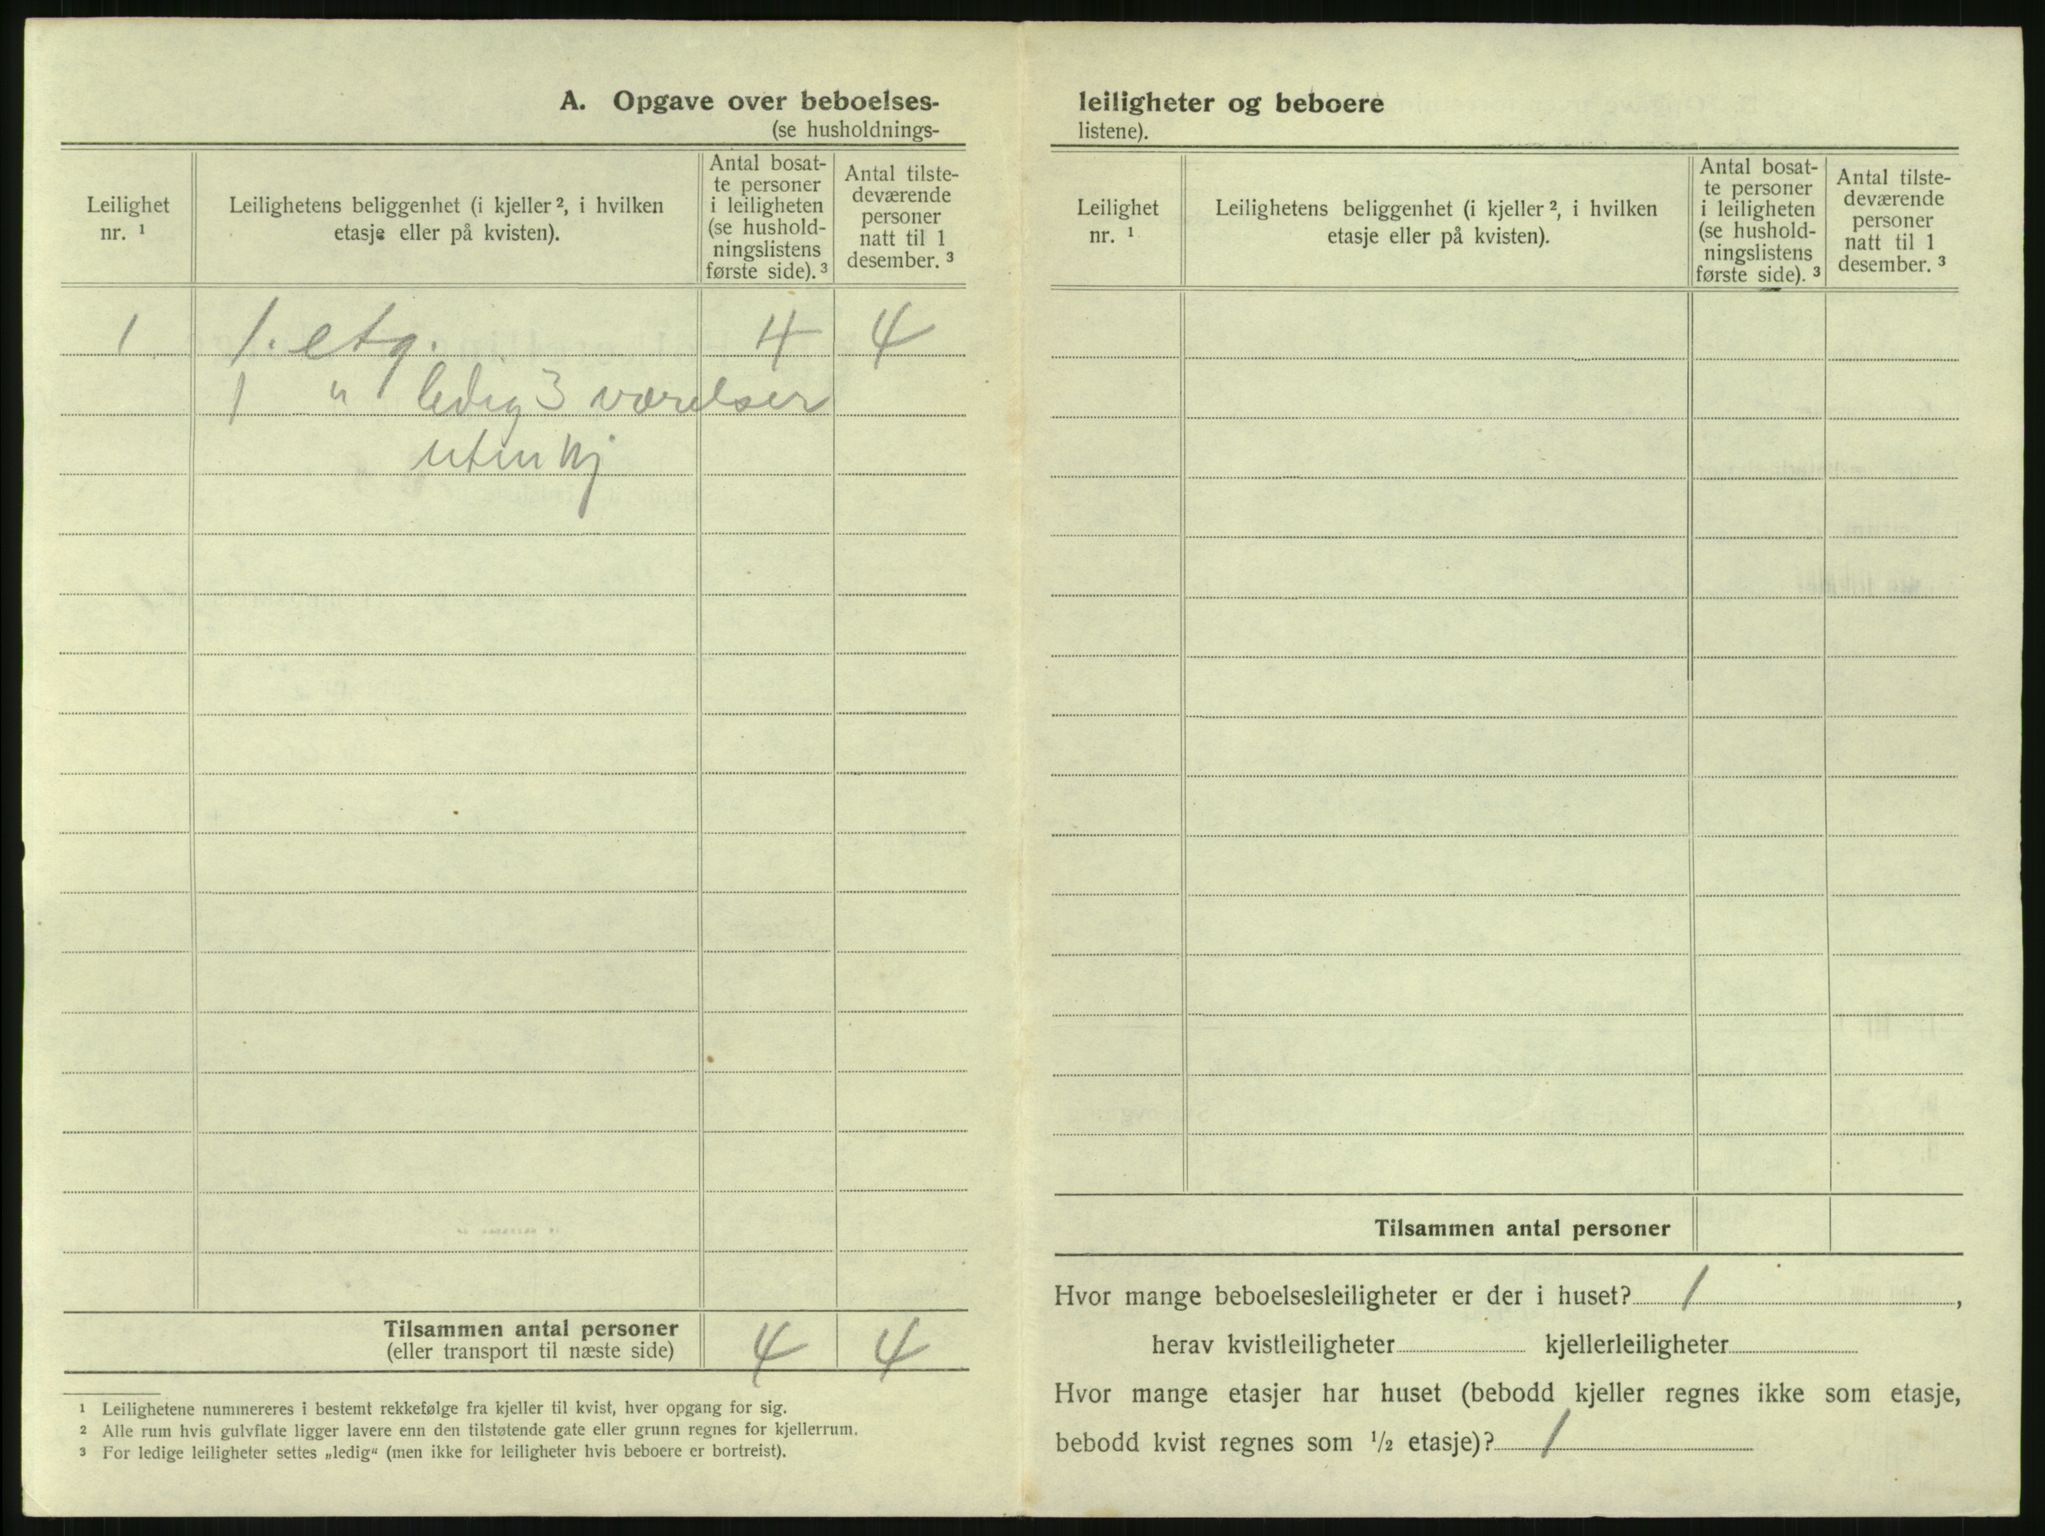 A. Opgave over beboelses-
(se husholdnings-
Leilighet
nr. ¹
Leilighetens beliggenhet (i kjeller ², i hvilken
etasje eller på kvisten).
Antal bosat-
te personer
i leiligheten
(se hushold-
ningslistens
første side). ³
Antal tilste-
deværende
personer
natt til 1
desember. ³
1 1. etg. 4 4
1 " ledig 3 værelser
uten kj
Tilsammen antal personer 4 4
(eller transport til næste side)
¹ Leilighetene nummereres i bestemt rekkefølge fra kjeller til kvist, hver opgang for sig.
² Alle rum hvis gulvflate ligger lavere enn den tilstøtende gate eller grunn regnes for kjellerrum.
³ For ledige leiligheter settes „ledig“ (men ikke for leiligheter hvis beboere er bortreist).
leiligheter og beboere
listene).
Leilighet
nr. ¹
Leilighetens beliggenhet (i kjeller ², i hvilken
etasje eller på kvisten).
Antal bosat-
te personer
i leiligheten
(se hushold-
ningslistens
første side). ³
Antal tilste-
deværende
personer
natt til 1
desember. ³
Tilsammen antal personer
Hvor mange beboelsesleiligheter er der i huset? 1,
herav kvistleiligheter kjellerleiligheter
Hvor mange etasjer har huset (bebodd kjeller regnes ikke som etasje,
bebodd kvist regnes som ¹/₂ etasje)? 1